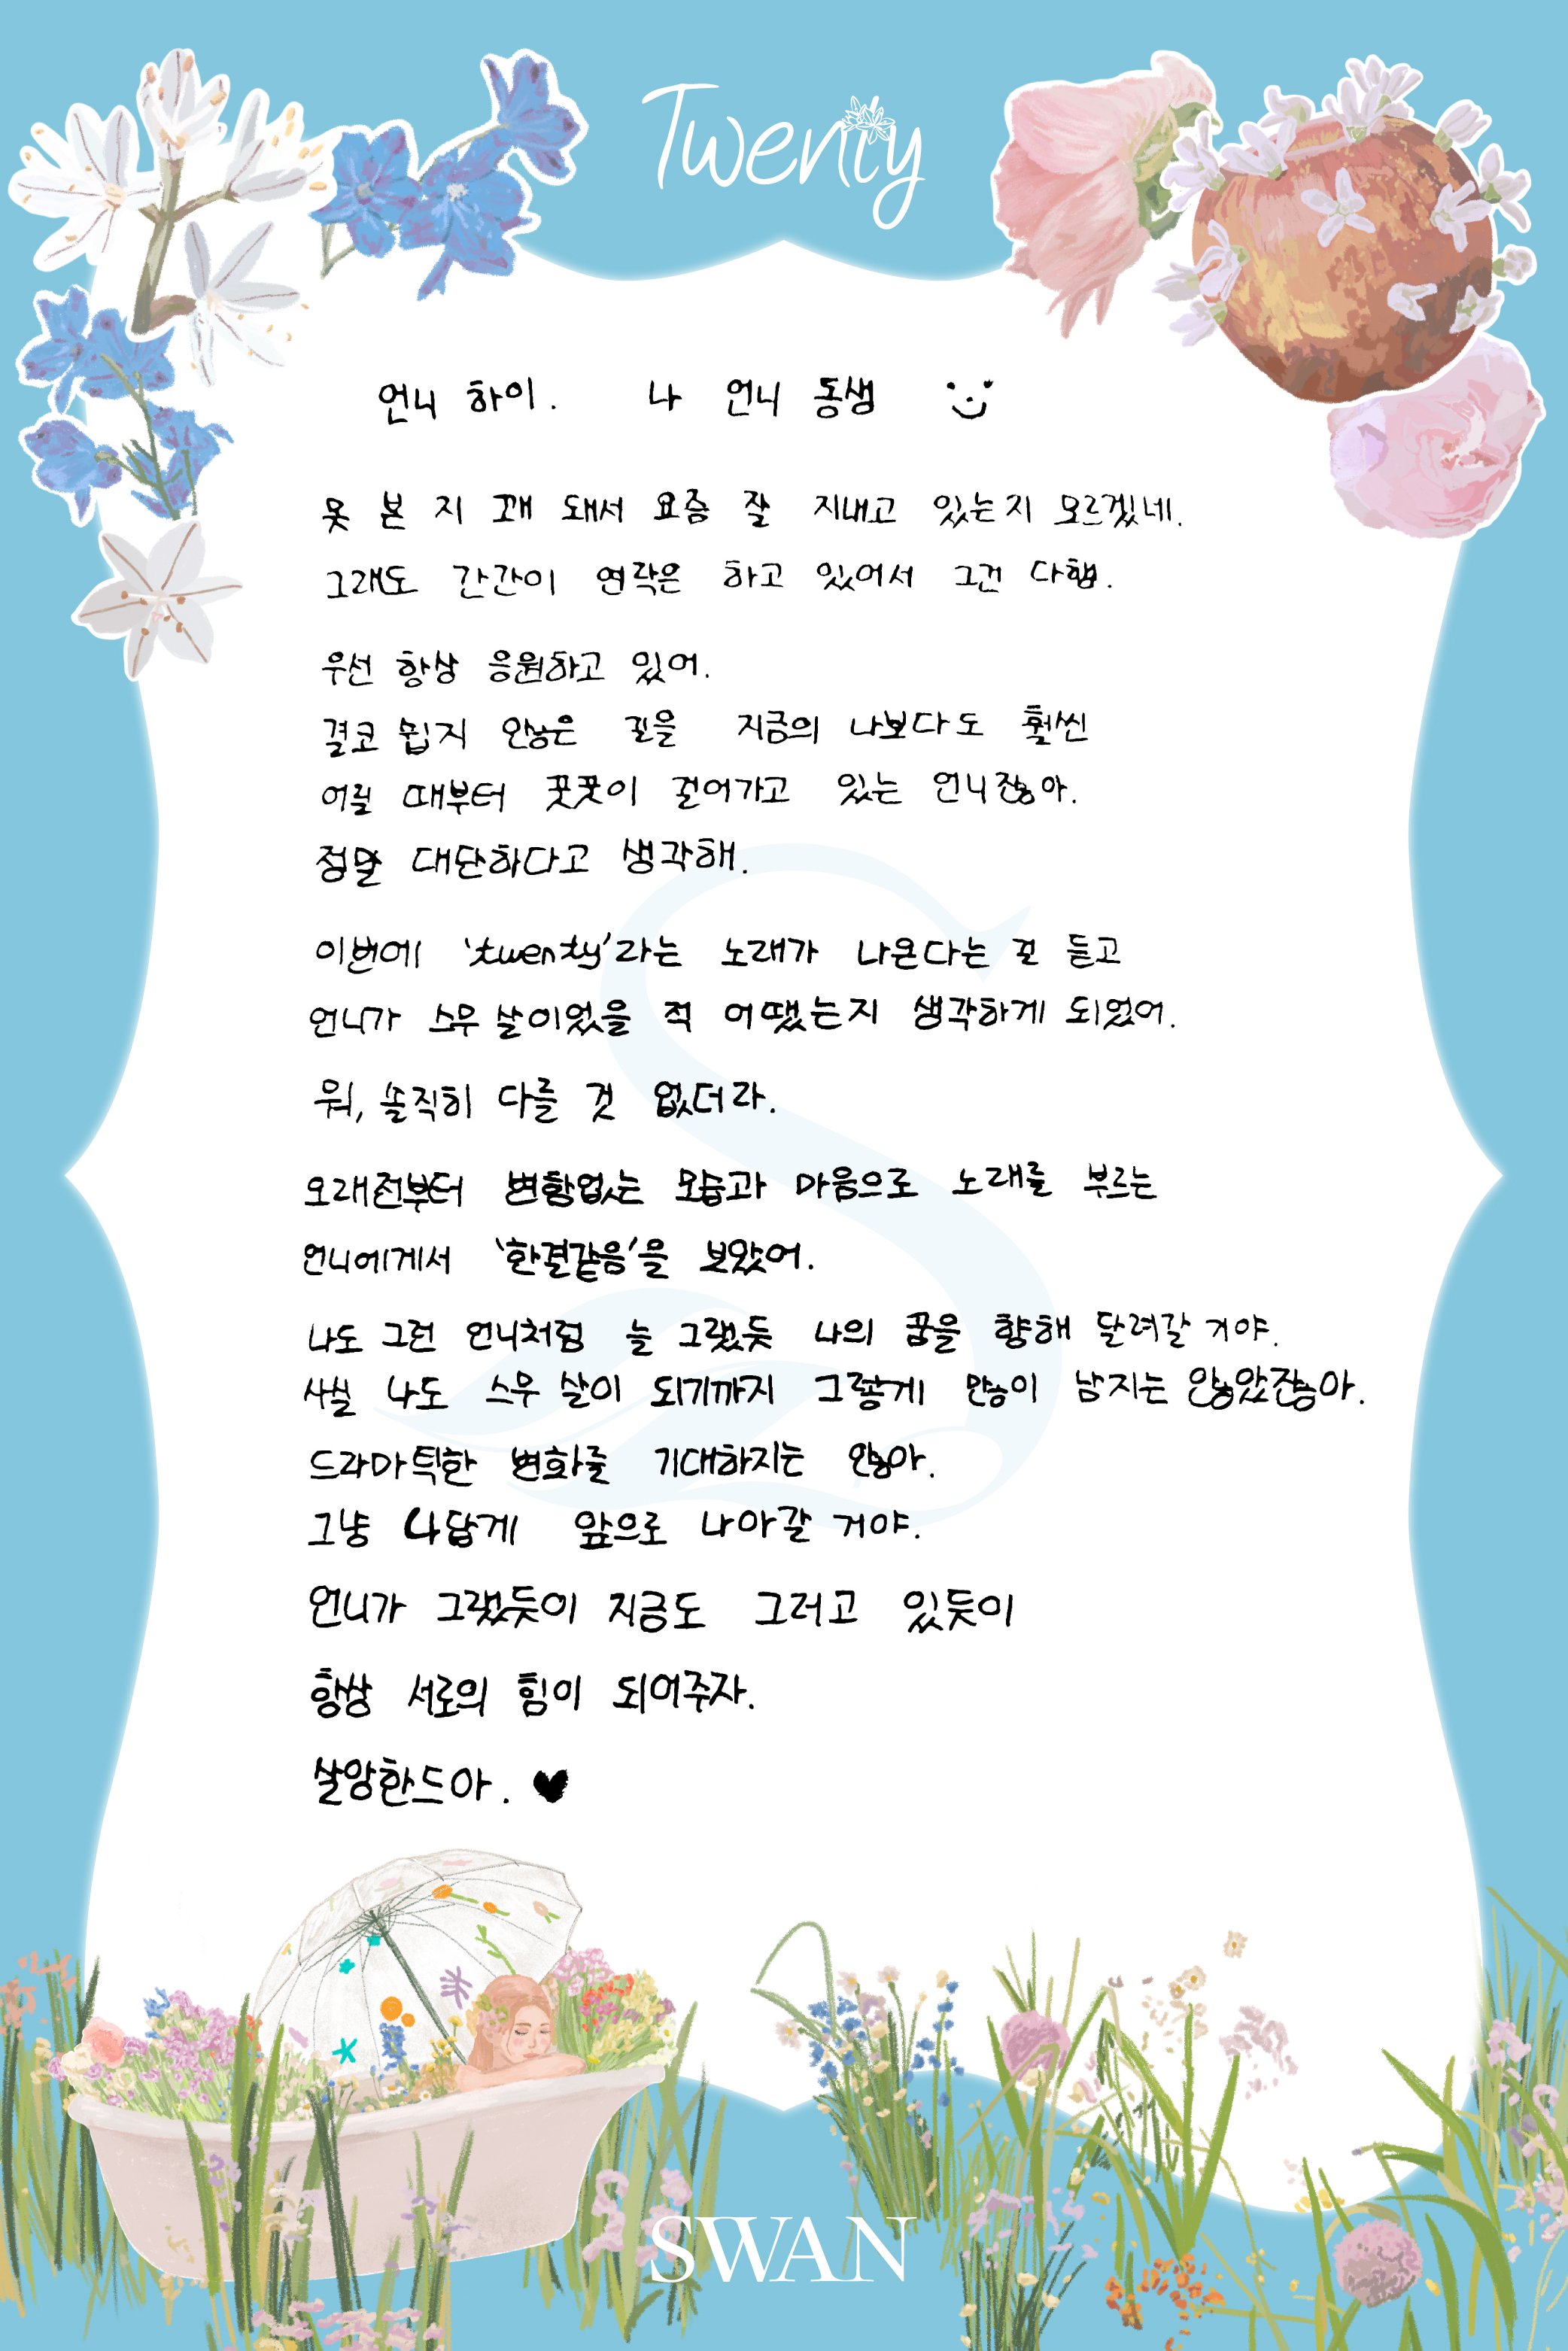 Twenty
언니 하이. 나 언니 동생
못 본 지 꽤 돼서 요즘 잘 지내고 있는지 모르겠네.
그래도 간간이 연락은 하고 있어서 그건 다행.
우선 항상 응원하고 있어.
결코 쉽지 않은 길을 지금의 나보다도 훨씬
어릴 때부터 꿋꿋이 걸어가고 있는 언니잖아.
정말 대단하다고 생각해.
이번에 'twenty'라는 노래가 나온다는 걸 듣고
언니가 스무 살이었을 적 어땠는지 생각하게 되었어.
뭐, 솔직히 다를 것 없더라.
오래전부터 변함없는 모습과 마음으로 노래를 부르는
언니에게서 '한결같음'을 보았어.
나도 그런 언니처럼 늘 그랬듯 나의 꿈을 향해 달려갈 거야.
사실 나도 스무 살이 되기까지 그렇게 많이 남지는 않았잖아.
드라마틱한 변화를 기대하지는 않아.
그냥 나답게 앞으로 나아갈 거야.
언니가 그랬듯이 지금도 그러고 있듯이
항상 서로의 힘이 되어주자.
살앙한드아. ♥
SWAN